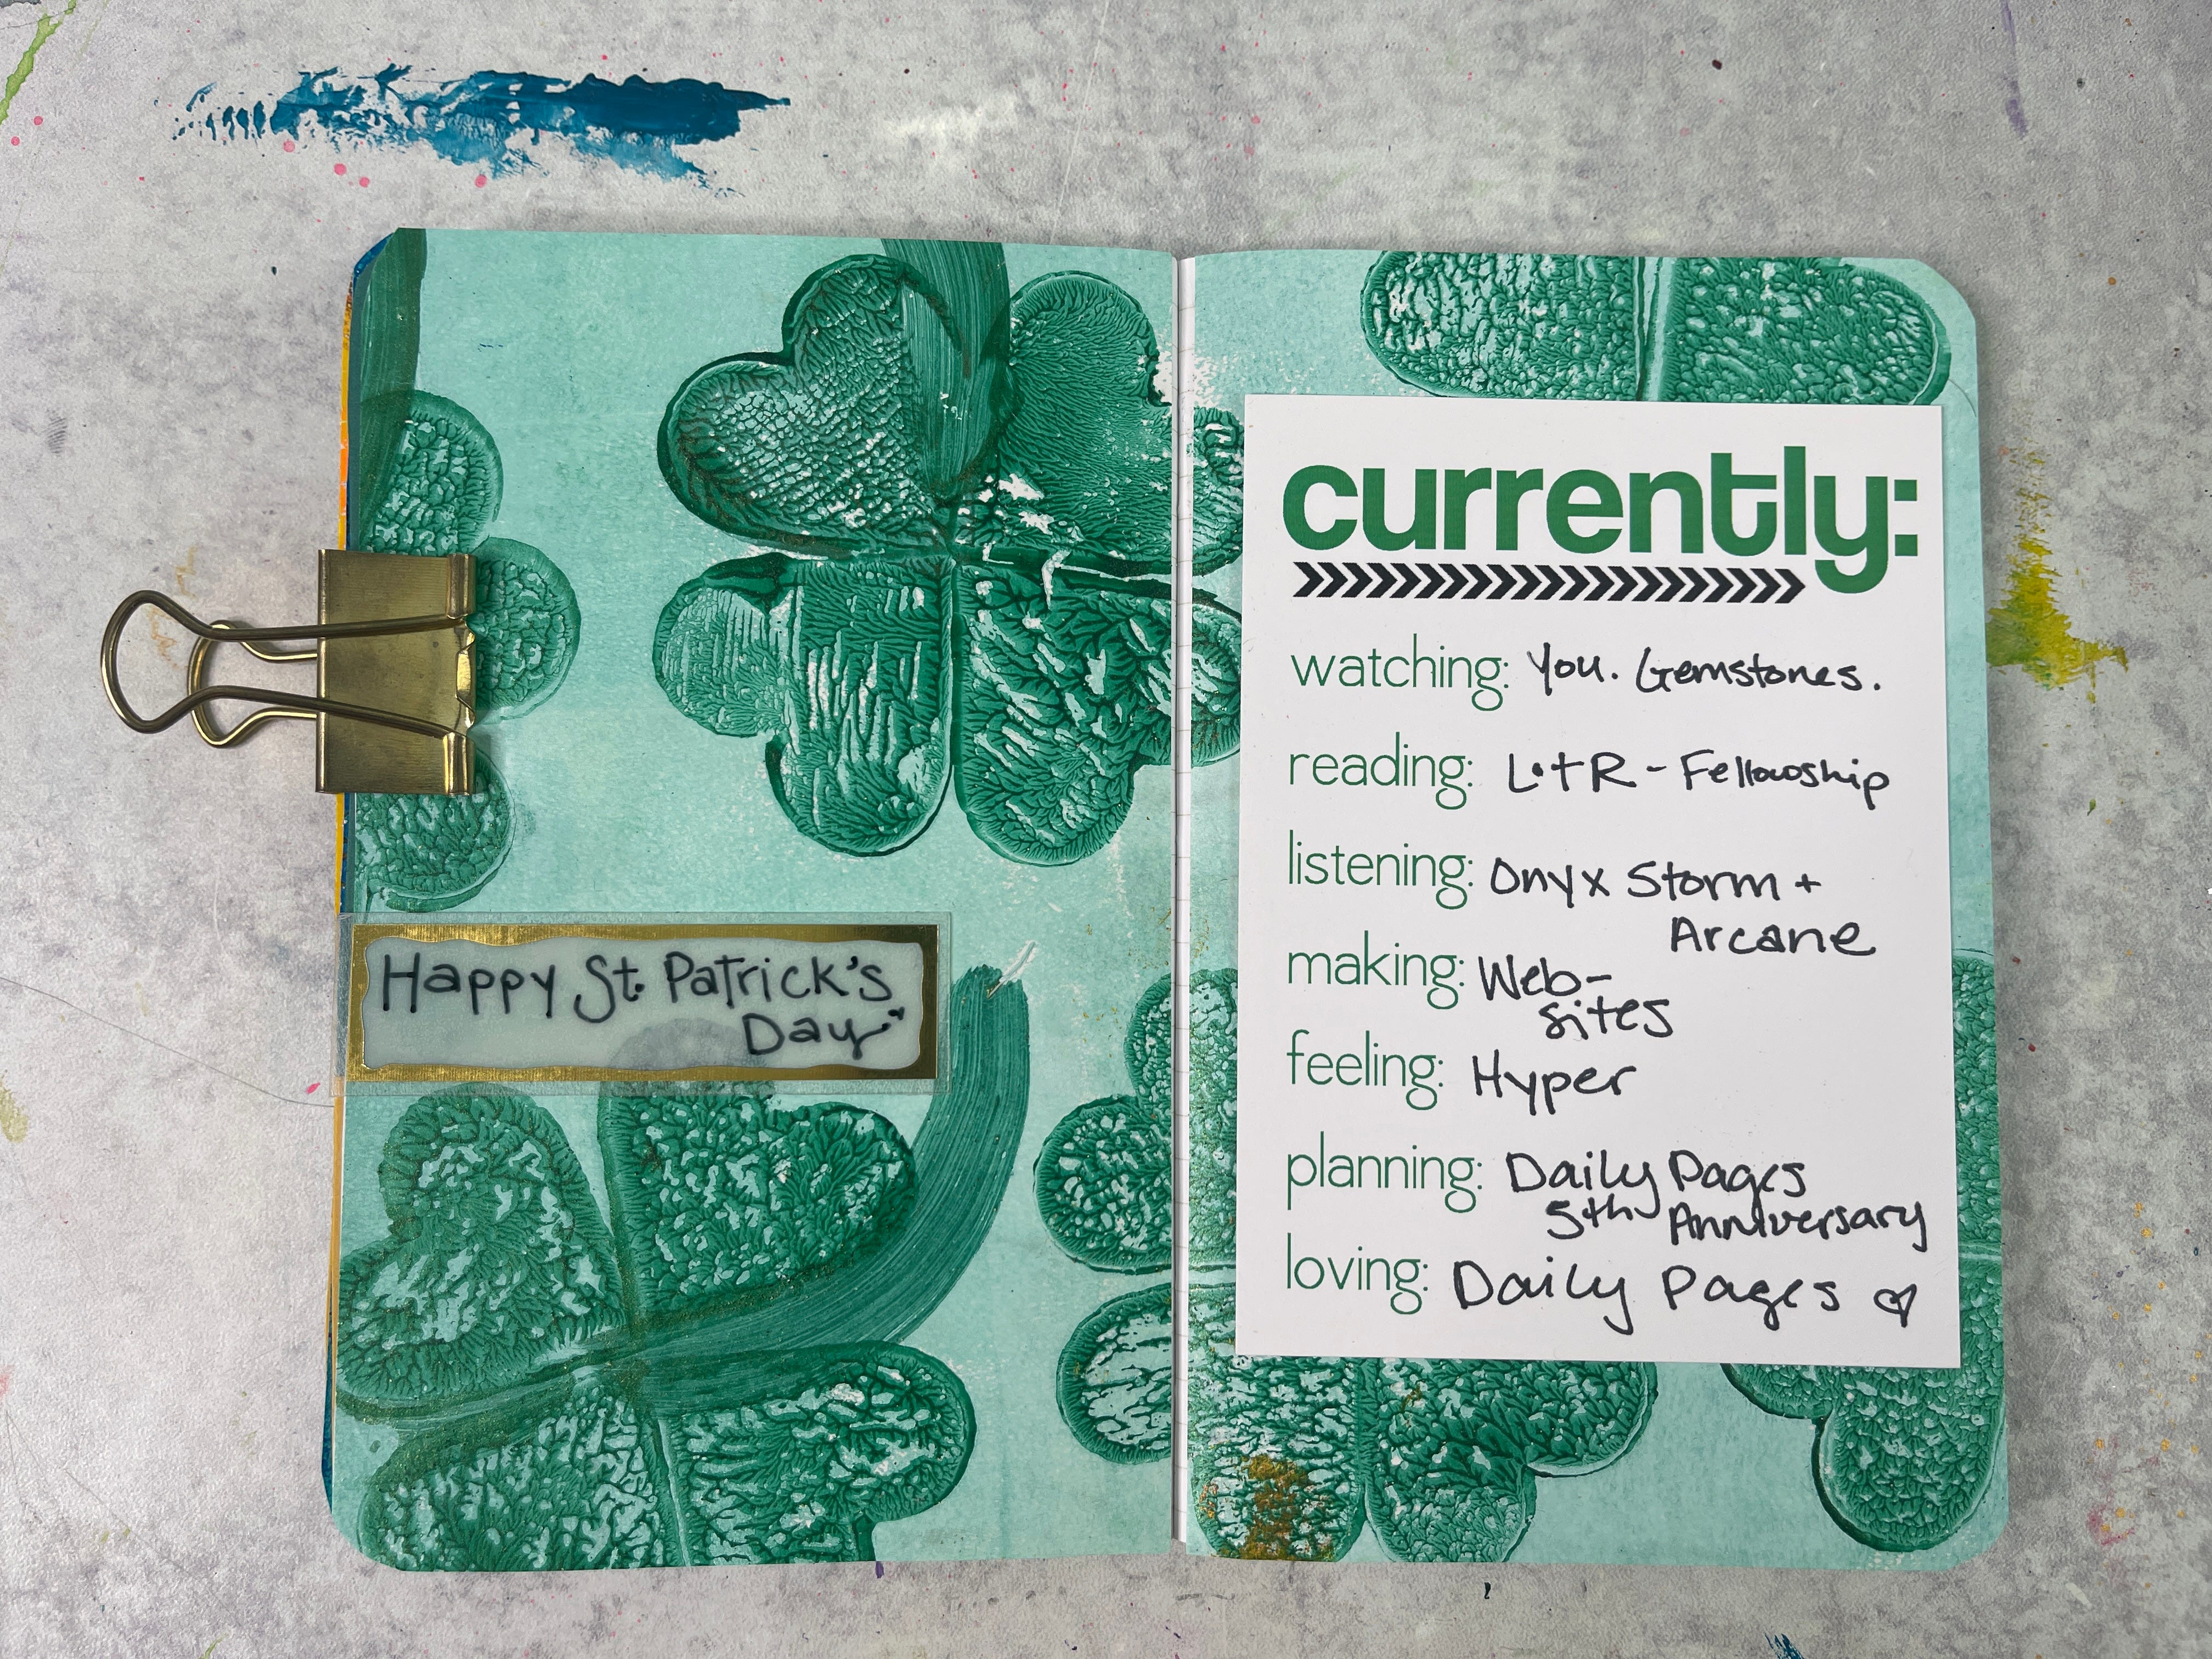 Happy St. Patrick's
Day
currently:
watching: You. Gemstones.
reading: LotR - Fellowship
listening: Onyx Storm +
Arcane
making: Web-
sites
feeling: Hyper
planning: Daily Pages
5th Anniversary
loving: Daily Pages ♡